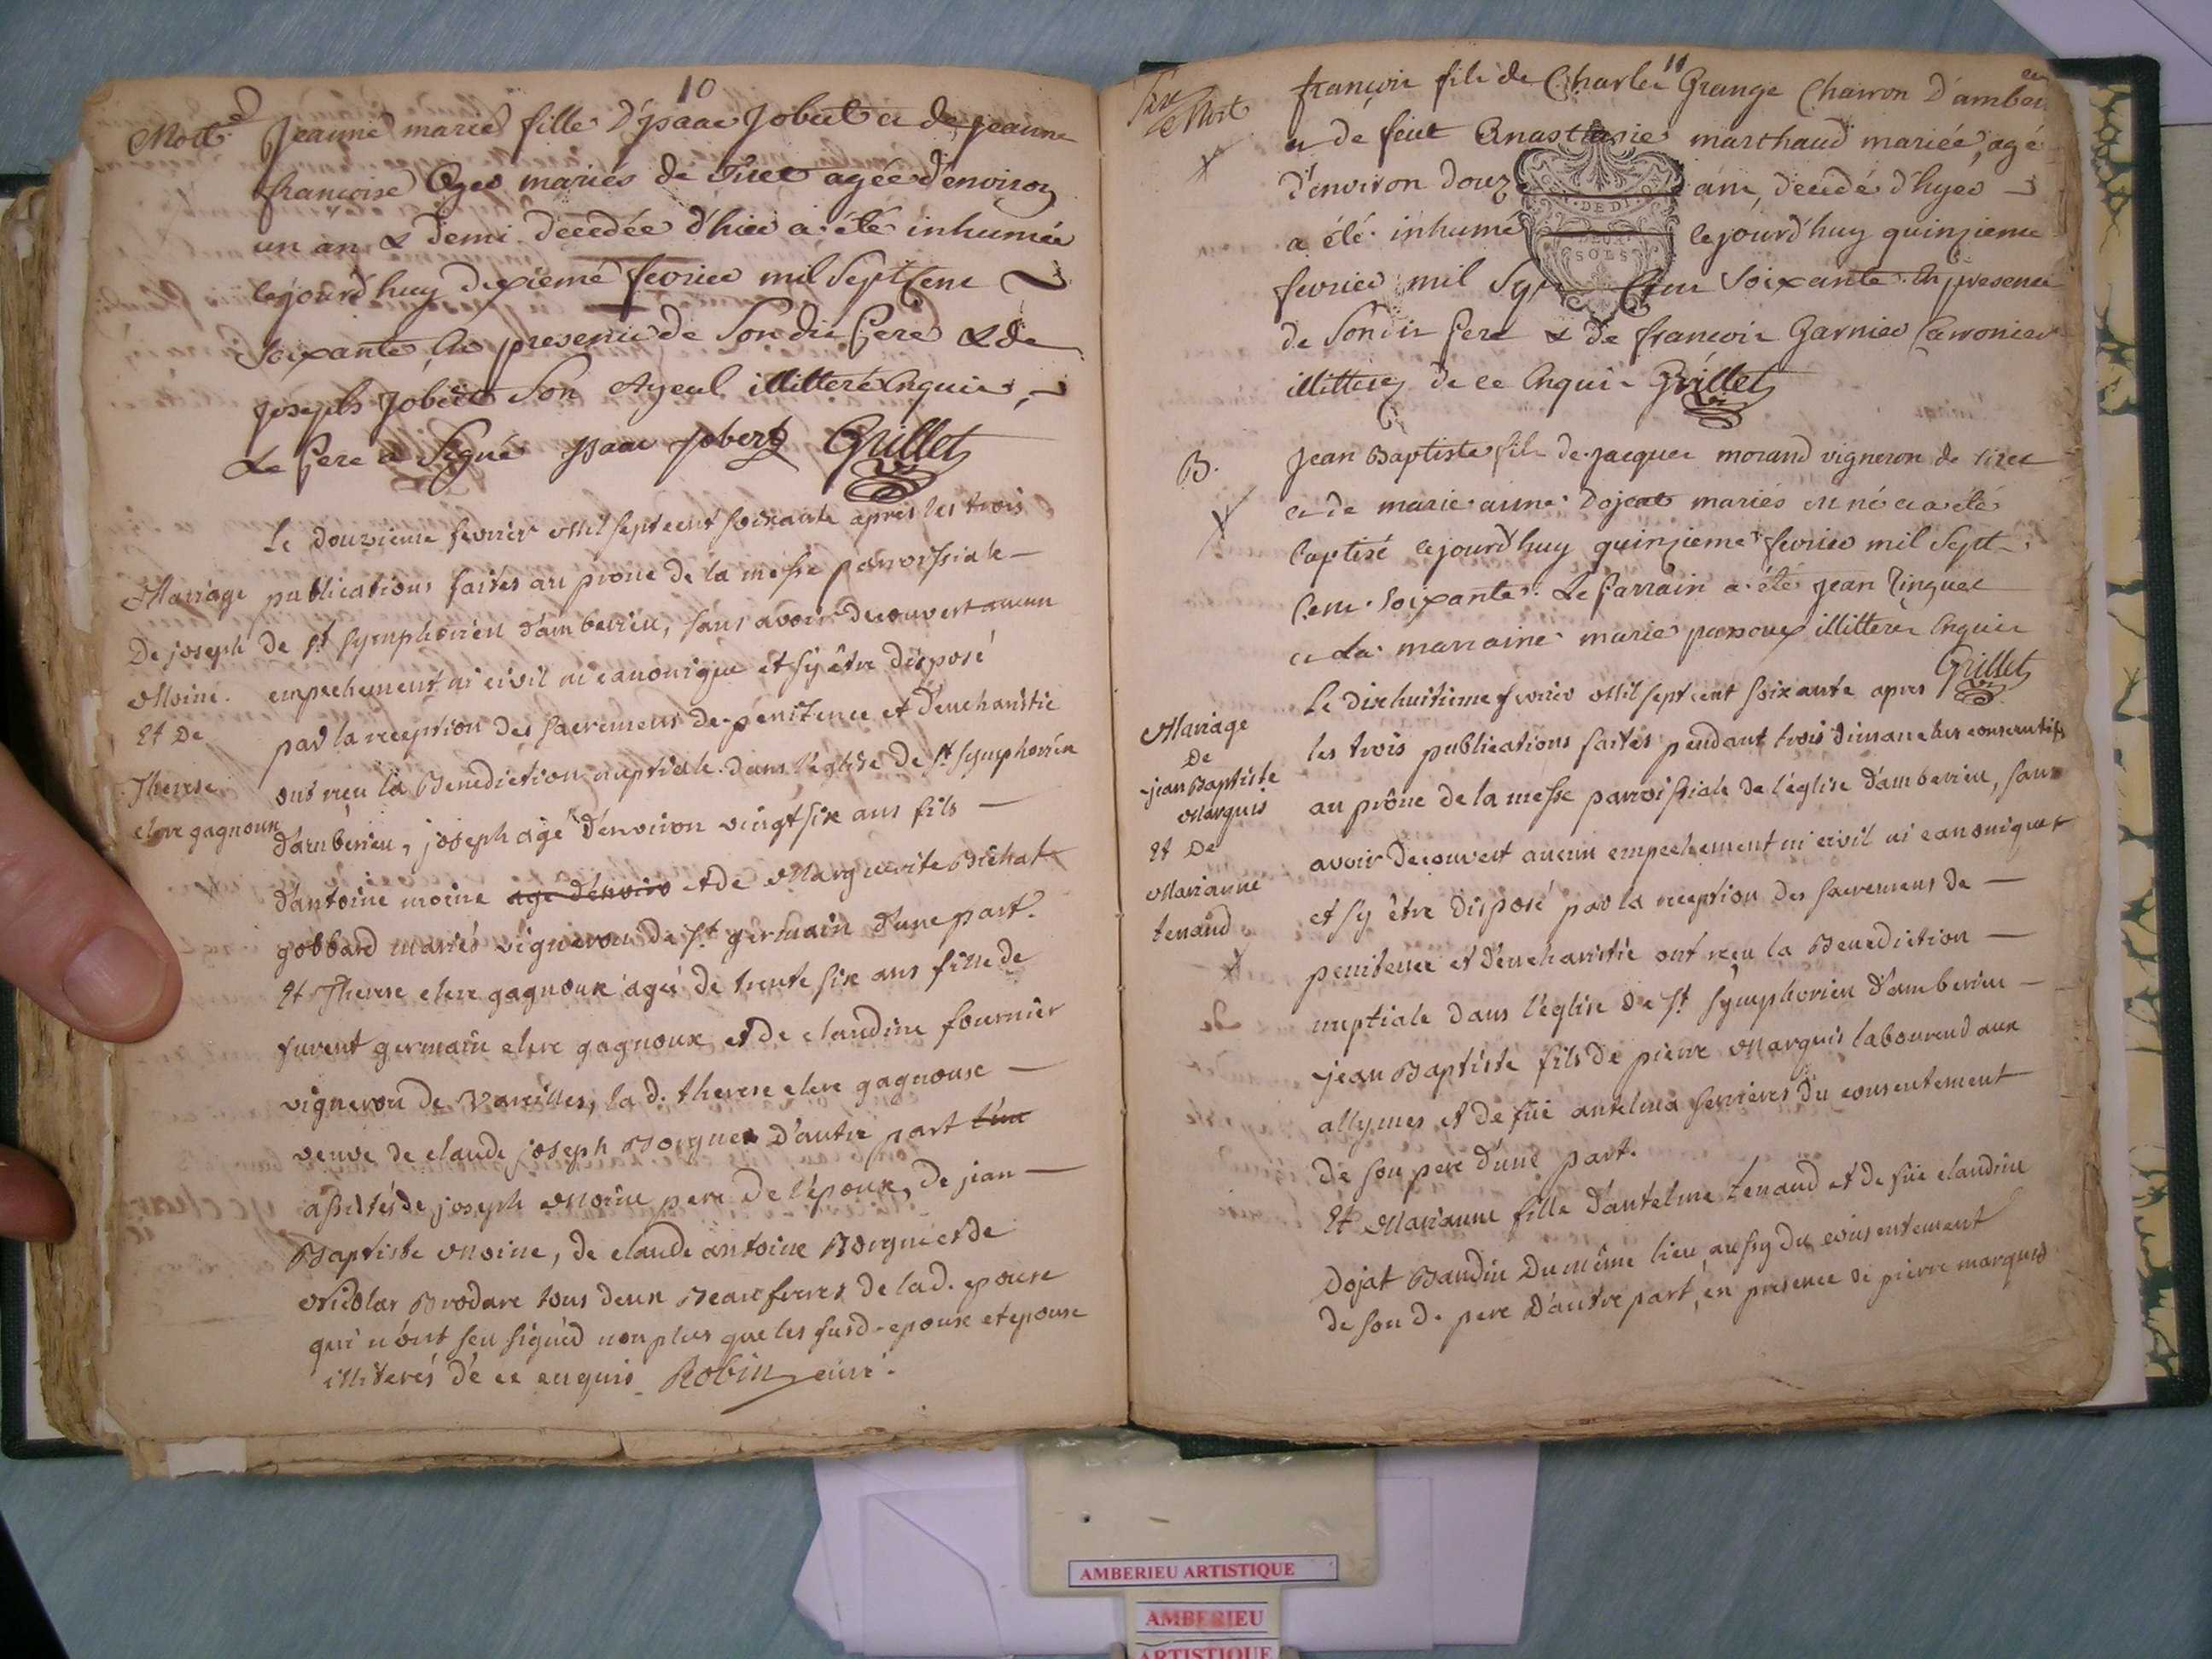 10
Morte
Jeanne marie fille D'jsaac Jobert et de jeanne
francoise Oger mariés de Tiret agée d'environ
un an & demi decedée d'hier a été inhumée
cejourd'huy dixieme fevrier mil Sept Cent
Soixante, en presence de Son dit Pere & de
joseph Jobert Son Ayeul illitteré Enquis,
Le Pere a Signé jsaac jobert Grillet
Mariage
De joseph
Moine
Et De
Therese
clere gagnoux
Le douzieme fevrier Mil sept cent soixante apres les trois
publications faites au prone de la messe parroissiale
de st symphorien d'amberieu, sans avoir decouvert aucun
empechement ni civil ni canonique et s'y être disposé
par la reception des sacremens de penitence et d'eucharistie
ont reçu la Benediction nuptiale dans l'eglise de st symphorien
d'amberieu, joseph agé d'environ vingt six ans fils
d'antoine moine agé d'environ et de Marguerite Bichat
gobbard mariés vigneron de st germain d'une part.
Et Therese clere gagnoux agée de trente six ans fille de
furent germain clere gagnoux et de claudine fournier
vigneron de Vareilles, la d. therese clere gagnouse
veuve de claude joseph Borgne d'autre part
assistés de joseph Moine pere de l'époux, de jean
Baptiste Moine, de claude antoine Borgne et de
Nicolas Brodare tous deux Beaufreres de la d. epouse
qui n'ont seu signer non plus que les susd. epoux et epouse
illiterés de ce enquis Robin curé.
11
Mort
françois fils de Charles Grange Charron D'amberieu
et de feüe Anastasie marchand mariée, agé
d'environ douze ans, decedé d'hyer
a été inhumé cejourd'huy quinzieme
fevrier mil Sept Cent Soixante. En presence
de Son dit Pere & de francois Garnier
illitterés de ce Enquis Grillet
DE DIJON
DEUX
SOLS
B.
Jean Baptiste fils de jacques morand vigneron de tiret
et de marie anne Dojat mariés est né et a été
baptisé cejourd'huy quinzieme fevrier mil Sept
Cent Soixante. Le Parrain a été jean Tinguet
et La marraine marie illitterés Enquis
Grillet
Mariage
De
jean Baptiste
Marquis
Et De
Marianne
tenand
Le dixhuitieme fevrier Mil sept cent soixante apres
les trois publications faites pendant trois dimanches consecutifs
au prône de la messe parroissiale de l'église d'amberieu, sans
avoir decouvert aucun empechement ni civil ni canonique
et s'y être disposé par la reception des sacremens de
penitence et d'eucharistie ont reçu la Benediction
nuptiale dans l'église de st symphorien d'amberieu
jean Baptiste fils de pierre Marquis laboureur aux
allymes et de füe antelma ferrieres du consentement
de son pere d'une part.
Et Marianne fille d'antelme tenand et de füe claudine
Dojat Baudin du même lieu aussy du consentement
de son d. pere d'autre part, en presence de pierre marquis
AMBERIEU ARTISTIQUE
AMBERIEU
ARTISTIQUE